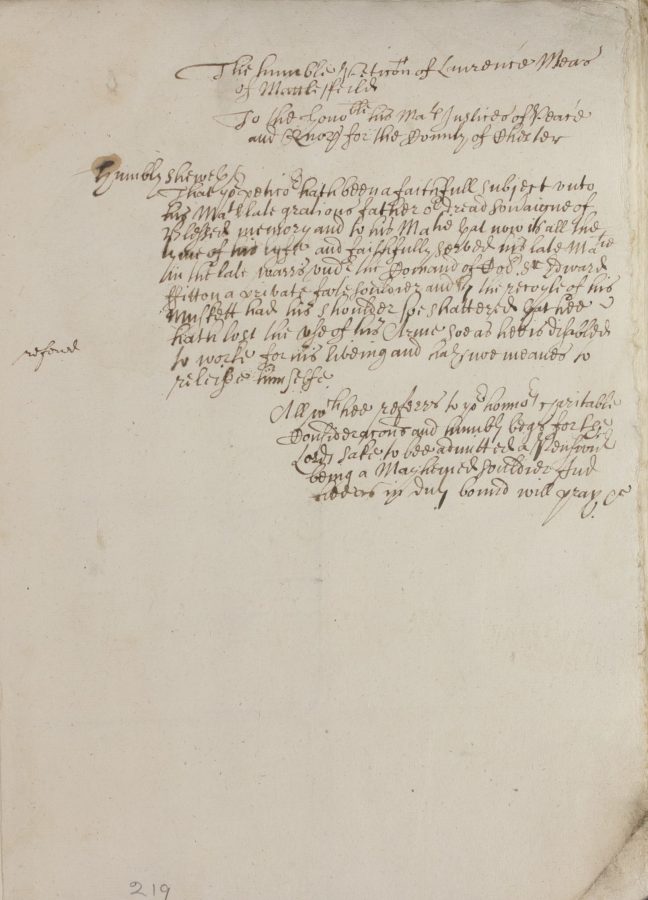 The humble Peticon of Laurence Mear
of Macclesfeild
To the Honoble his Mats Justices of Peace
and Quor for the County of Chester
Humbly sheweth
That yor peticor hath been a faithfull subject unto
his Mats late gratious father or dread Soveraigne of
Blessed memory and to his Matie yat now is all the
tyme of his lyfe and faithfully served his late Matie
in the late Warrs undr the Comand of Col Sr Edward
Fitton a private foote souldier and by the recoyle of his
Muskett had his shoulder soe shattered yat hee
hath lost the use of his Arme soe as hee is disabled
to worke for his liveing and hath noe meanes to
releive him selfe
refered
All wch hee referrs to yor honors Charitable
Consideracons and humbly begs for the
Lords sake to bee admitted a Pensionr
being a Maymed souldier And
hee as in duty bound will pray &c
219